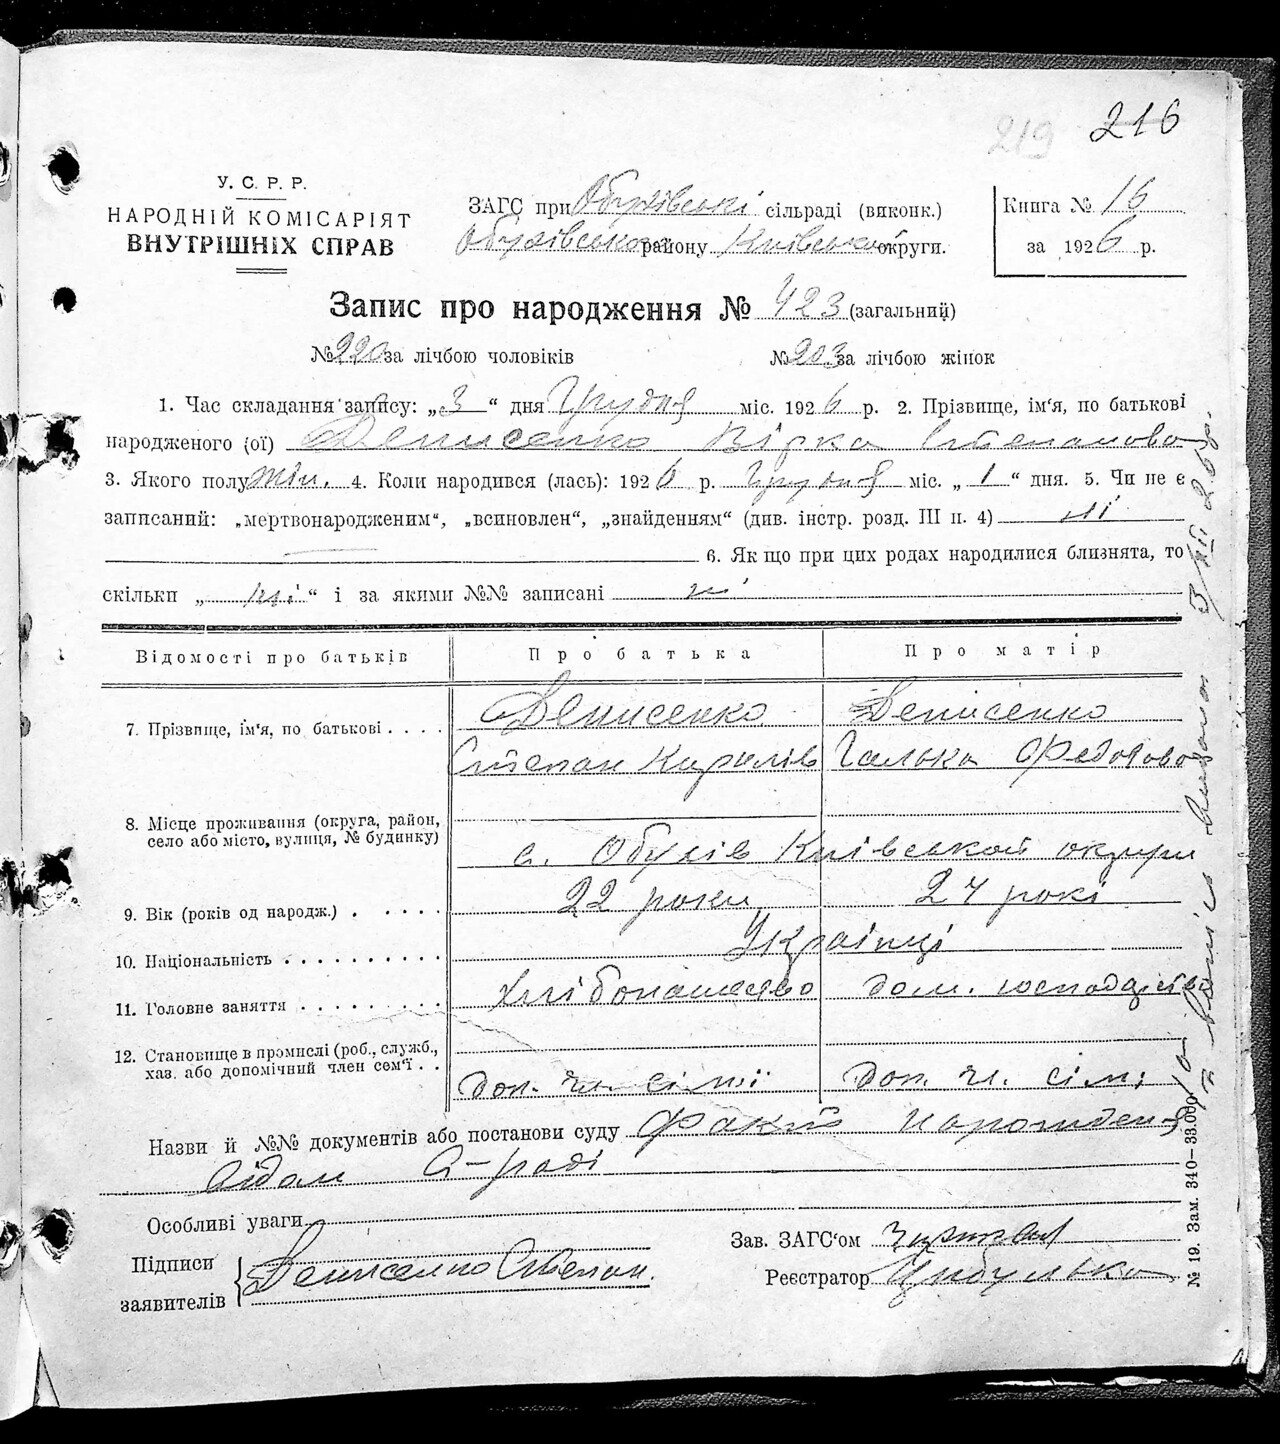 219 216
У. С. Р. Р.
НАРОДНІЙ КОМІСАРІЯТ
ВНУТРІШНІХ СПРАВ
ЗАГС при Обухівські сільраді (виконк.)
Обухівського району Київської округи.
Книга № 16
за 1926 р.
Запис про народження № 423 (загальний)
№ 220 за лічбою чоловіків № 203 за лічбою жінок
1. Час складання запису: „3“ дня Грудня міс. 1926 р. 2. Прізвище, ім'я, по батькові
народженого (ої) Денисенко Вірка Степанова
3. Якого полу жін. 4. Коли народився (лась): 1926 р. Грудня міс. „1“ дня. 5. Чи не є
записаний: „мертвонародженим“, „всиновлен“, „знайденням“ (див. інстр. розд. III п. 4) ні
6. Як що при цих родах народилися близнята, то
скільки „ні“ і за якими №№ записані ні
Відомості про батьків Про батька Про матір
7. Прізвище, ім'я, по батькові . . . . Денисенко Денисенко
Степан Кирилів Галька Федотова
8. Місце проживання (округа, район,
село або місто, вулиця, № будинку)
с. Обухів Київської округи
9. Вік (років од народж.) . . . . . 22 роки 24 рокі
10. Національність . . . . . . . . . . Українці
11. Головне заняття . . . . . . . . . хлібопашество дом. господарство
12. Становище в промислі (роб., служб.,
хаз. або допомічний член сем'ї . . доп. чл. сімї доп. чл. сімі
Назви й №№ документів або постанови суду Факт народження
відом С-раді
Особливі уваги
Підписи
заявителів
Денисенко Степан.
Зав. ЗАГС'ом
Реєстратор Цибулько
№ 19. Зам. 340—33.000
3/XII 26 р.